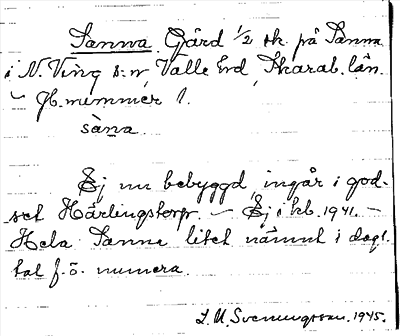 Sanna. Gård 1/2 sk. på Sanna
i N. Ving s:n Valle hd, Skarab. län.
– Jb. nummer 1.
sàna
Ej nu bebyggd, ingår i god-
set Härlingstorp. – Ej i kb. 1941. –
Hela Sanna litet nämnt i dagl.
tal f. ö. numera.
Svenungsson. 1945.